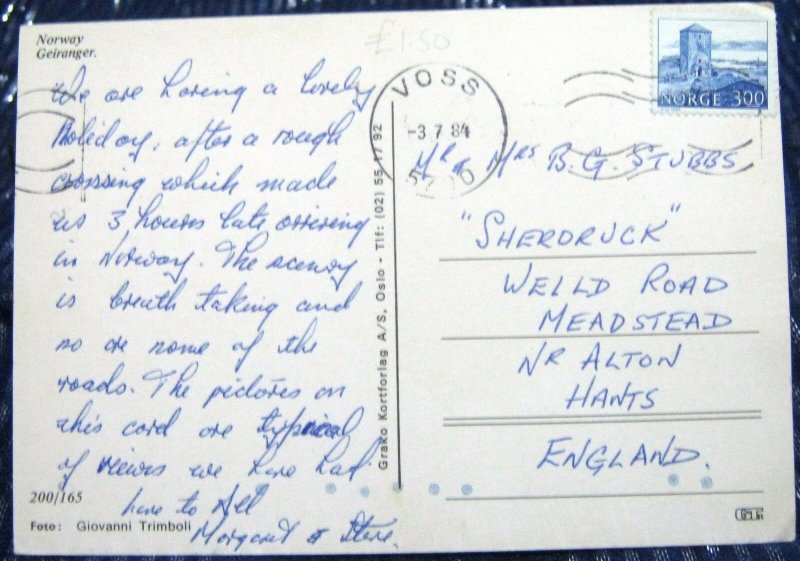 Norway
Geiranger.
£1.50
We are having a lovely
Holiday, after a rough
crossing which made
us 3 hours late arriving
in Norway. The scenery
is breath taking and
so are some of the
roads. The pictures on
this card are typical
of views we have had
love to All
Margaret & Steve.
200/165
Foto: Giovanni Trimboli
Grako Kortforlag A/S, Oslo - Tlf: (02) 55 17 92
VOSS
-3 7 84
5700
NORGE 300
Mr & Mrs B.G. STUBBS
"SHERDRUCK"
WELLD ROAD
MEADSTEAD
NR ALTON
HANTS
ENGLAND.